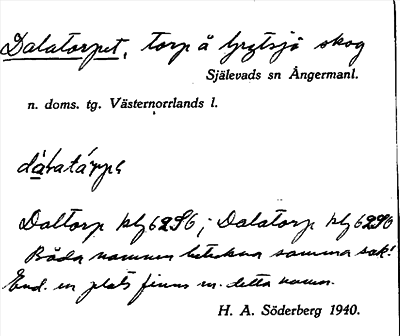 Dalatorpet, torp å Gystsjö skog
Själevads sn Ångermanl.
n. doms. tg. Västernorrlands l.
Daltorp blz 6296; Dalatorp blz 6296
Båda namnen beteckna samma sak!
End. en plats finns m. detta namn.
H. A. Söderberg 1940.